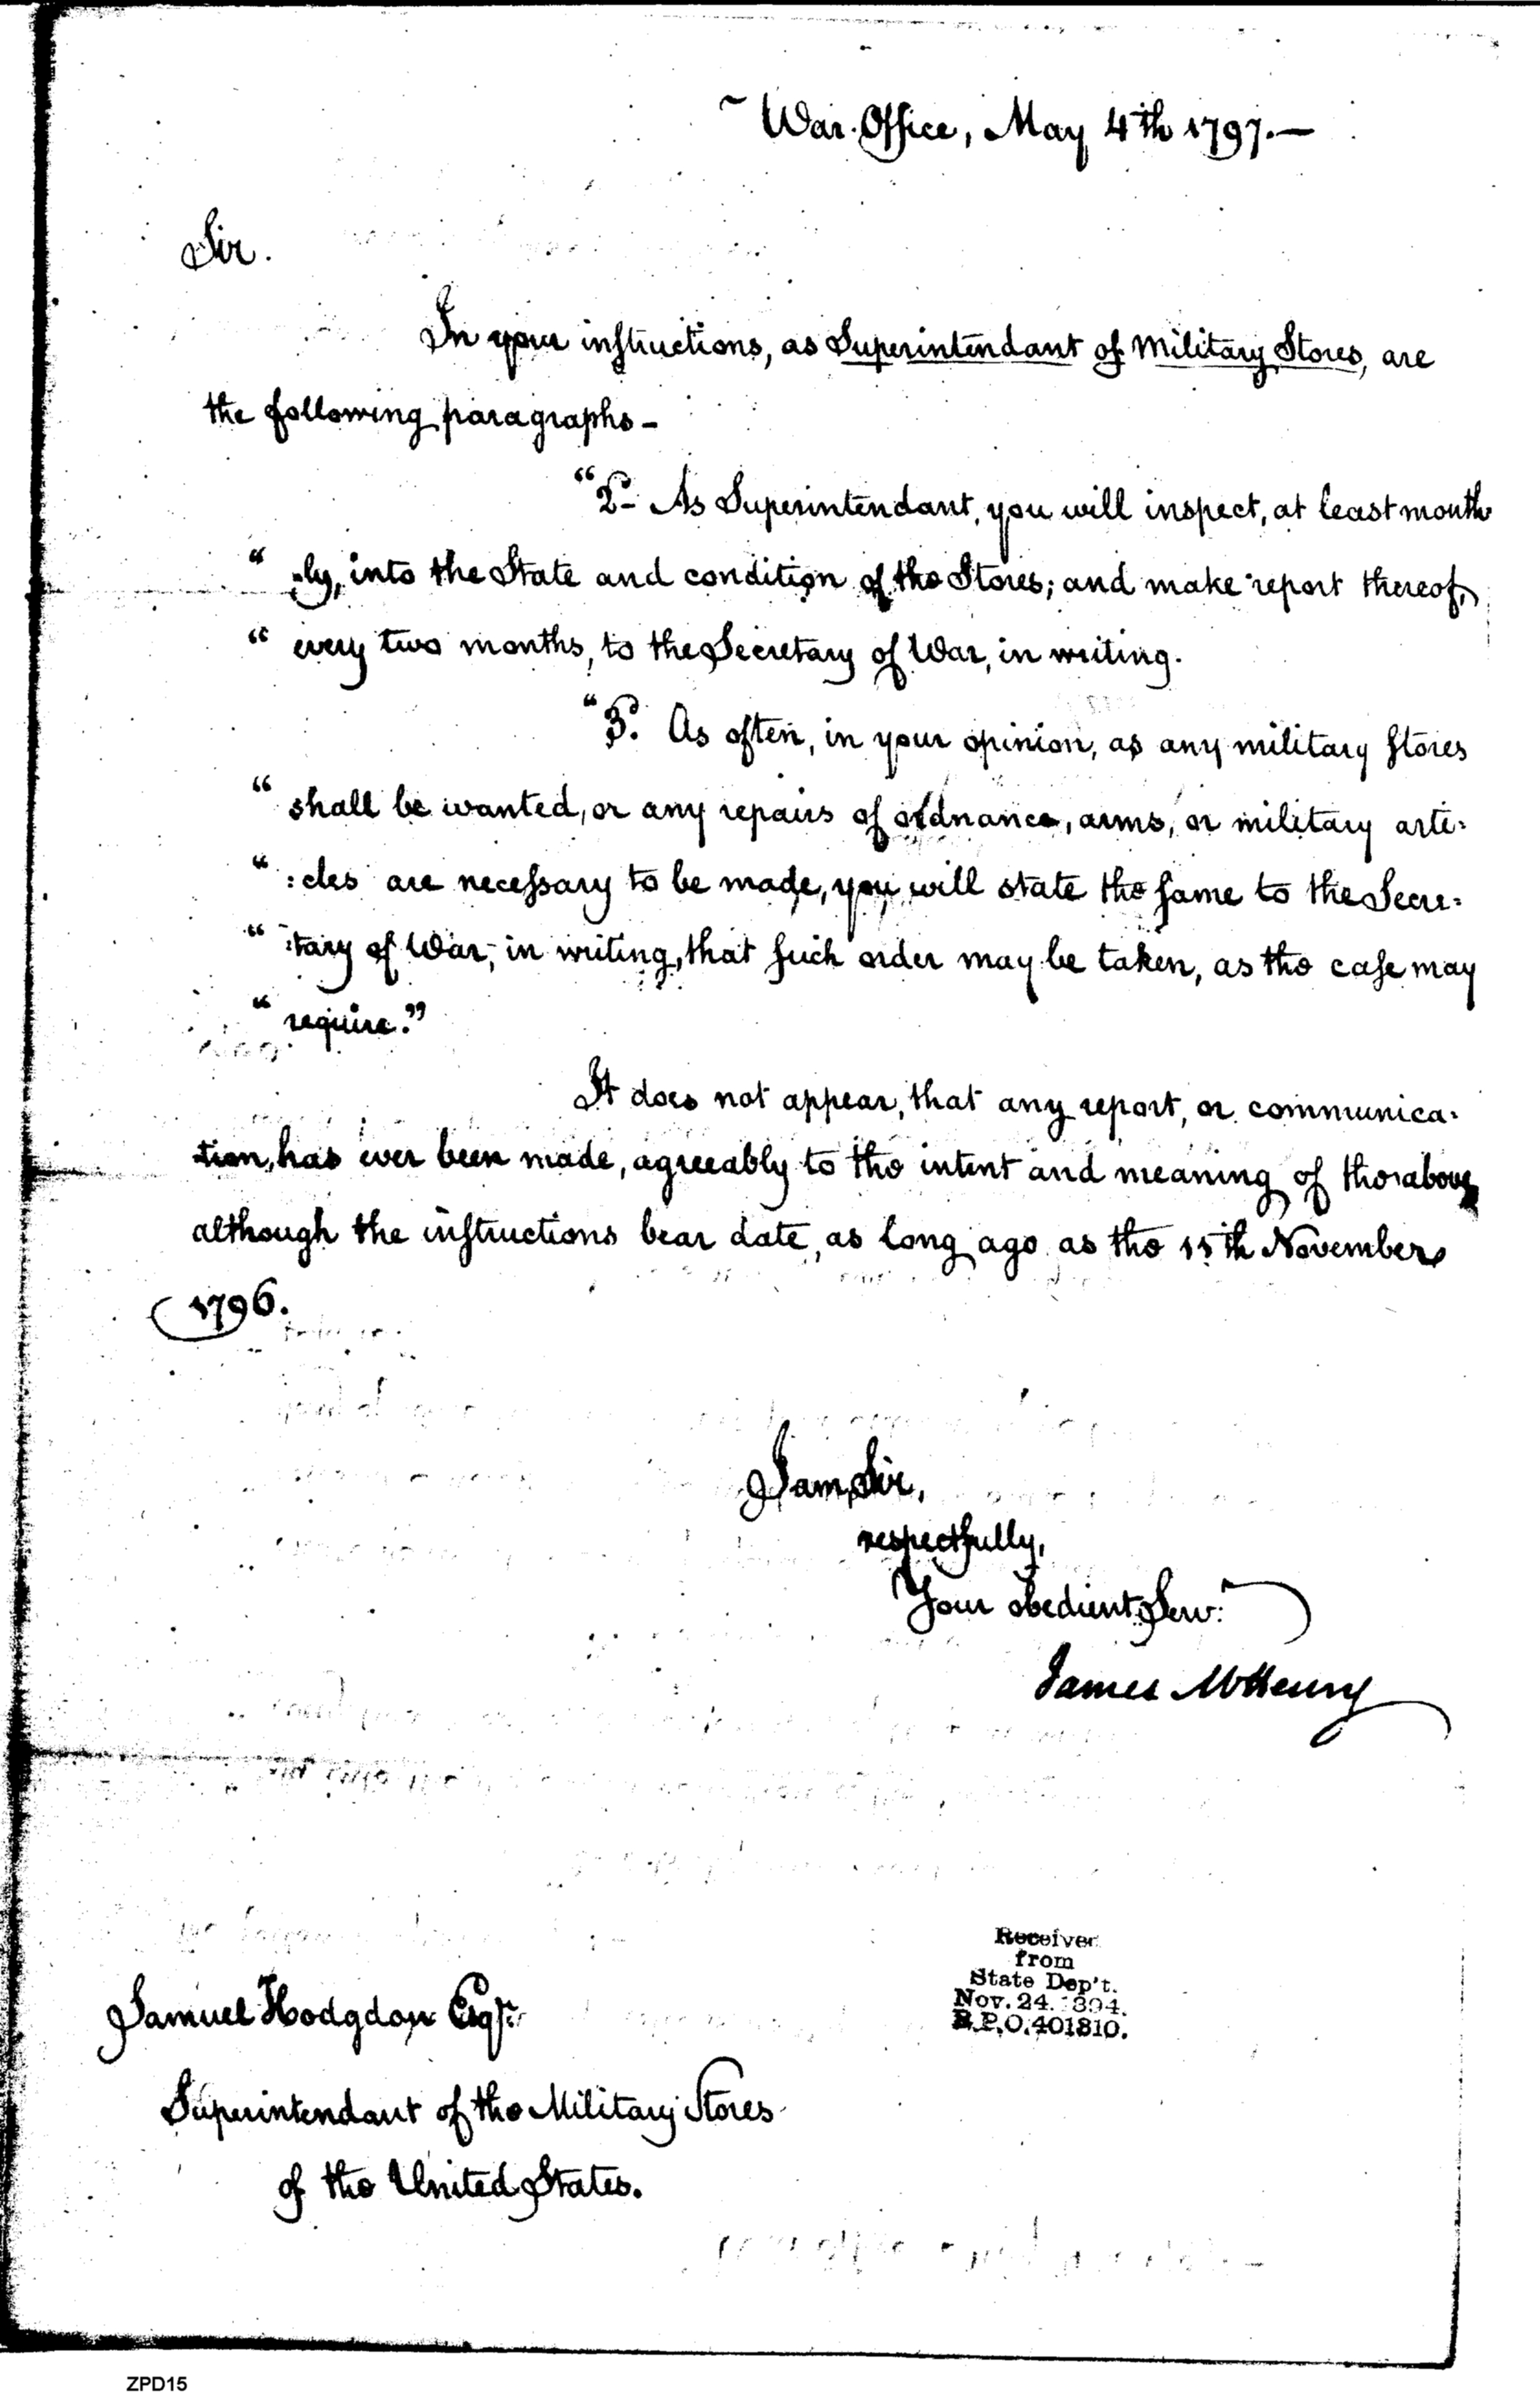 War Office, May 4th 1797.—
Sir.
In your instructions, as Superintendant of Military Stores, are
the following paragraphs—
"2d— As Superintendant, you will inspect, at least month
" :ly, into the State and condition of the Stores; and make report thereof,
" every two months, to the Secretary of War, in writing.
"3d. As often, in your opinion, as any military stores
" shall be wanted, or any repairs of ordnance, arms, or military arti:
" :cles are necessary to be made, you will state the same to the Secre:
" :tary of War, in writing, that such order may be taken, as the case may
" require."
It does not appear, that any report, or communica:
tion, has ever been made, agreeably to the intent and meaning of the above
although the instructions bear date, as long ago as the 15th November
1796.
I am, Sir,
respectfully,
Your obedient Serv:t
James McHenry
Received
from
State Dep't.
Nov. 24. 1894.
R.P.O. 401810.
Samuel Hodgdon Esqr:
Superintendant of the Military Stores
of the United States.
ZPD15